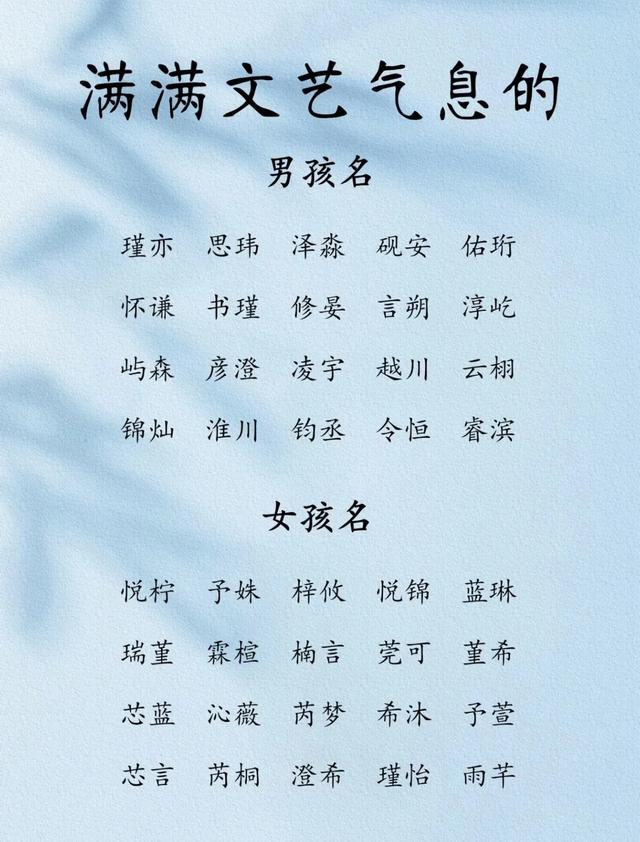 满满文艺气息的
男孩名
瑾亦 思玮 泽淼 砚安 佑珩
怀谦 书瑾 修晏 言朔 淳屹
屿森 彦澄 凌宇 越川 云栩
锦灿 淮川 钧丞 令恒 睿滨
女孩名
悦柠 予姝 梓攸 悦锦 蓝琳
瑞堇 霖楦 楠言 莞可 堇希
芯蓝 沁薇 芮梦 希沐 予萱
芯言 芮桐 澄希 瑾怡 雨芊